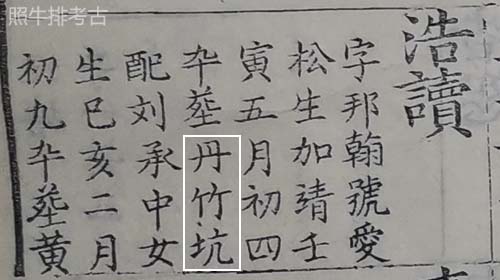 照牛排考古
浩讀
字邦翰號愛
松生加靖壬
寅五月初四
卒葬丹竹坑
配刘承中女
生巳亥二月
初九卒葬黄